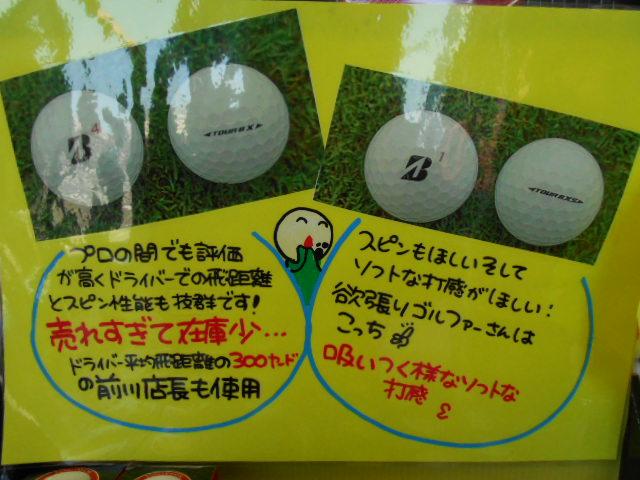 B
4
TOUR B X
B
1
TOUR B XS
プロの間でも評価
が高くドライバーでの飛距離
とスピン性能も抜群です!
売れすぎて在庫少…
ドライバー平均飛距離の300ヤード
の前川店長も使用
スピンもほしいそして
ソフトな打感がほしい!
欲張りゴルファーさんは
こっち
吸いつく様なソフトな
打感